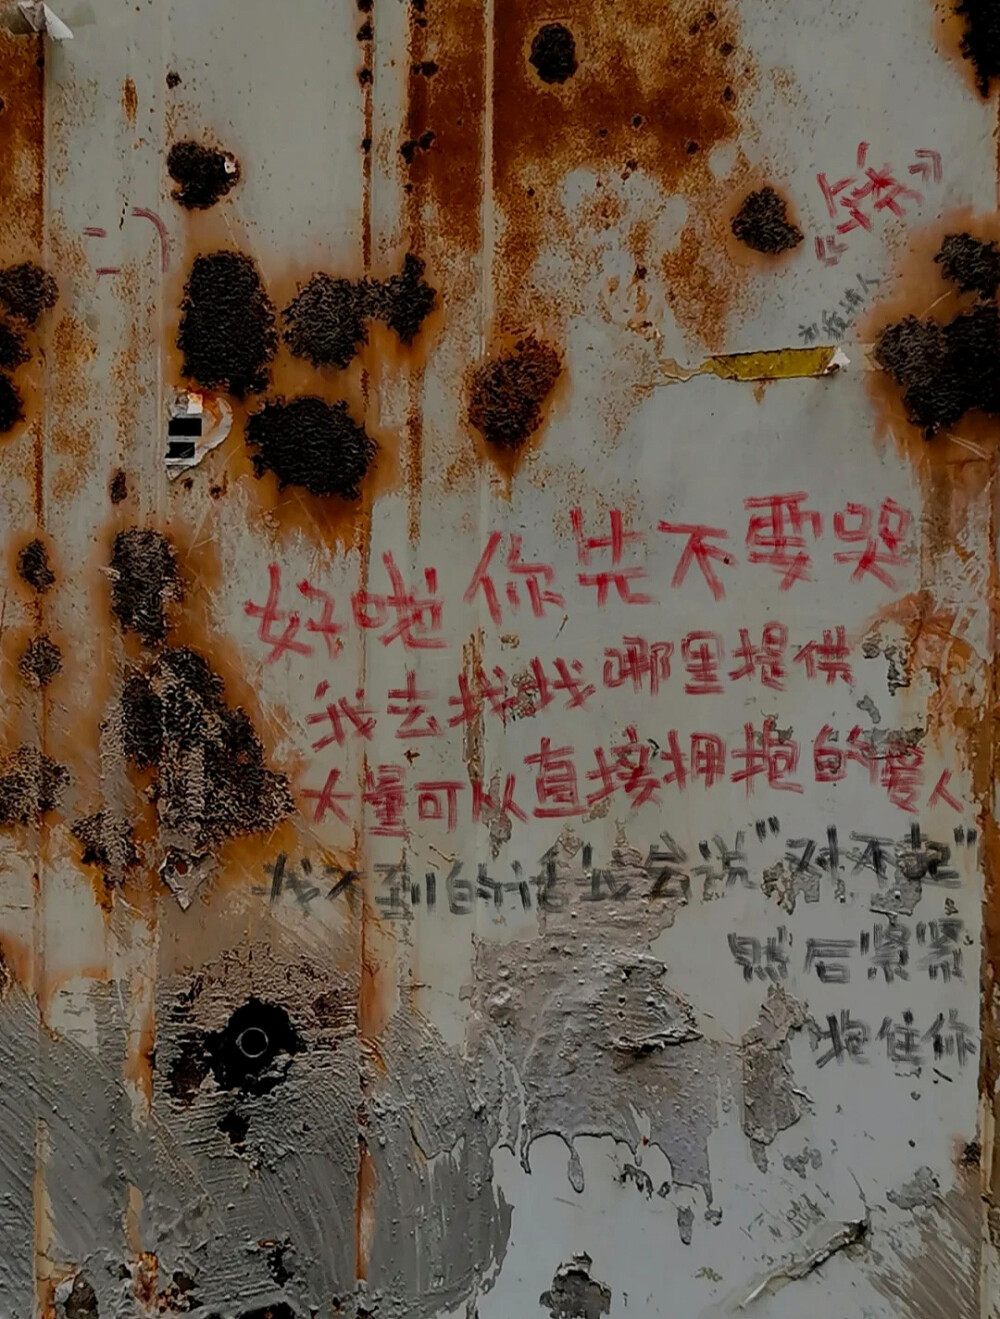 好啦你先不要哭
我去找找哪里提供
大量可以直接拥抱的爱人
找不到的话我会说"对不起"
然后紧紧
抱住你